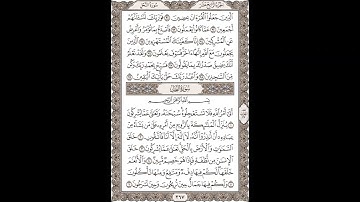 سُورَةُ الحِجْرِ
الجُزْءُ الرَّابِعَ عَشَرَ
الَّذِينَ جَعَلُوا الْقُرْآنَ عِضِينَ ۝٩١ فَوَرَبِّكَ لَنَسْأَلَنَّهُمْ
أَجْمَعِينَ ۝٩٢ عَمَّا كَانُوا يَعْمَلُونَ ۝٩٣ فَاصْدَعْ بِمَا تُؤْمَرُ وَأَعْرِضْ
عَنِ الْمُشْرِكِينَ ۝٩٤ إِنَّا كَفَيْنَاكَ الْمُسْتَهْزِئِينَ ۝٩٥ الَّذِينَ
يَجْعَلُونَ مَعَ اللَّهِ إِلَٰهًا آخَرَ فَسَوْفَ يَعْلَمُونَ ۝٩٦ وَلَقَدْ نَعْلَمُ
أَنَّكَ يَضِيقُ صَدْرُكَ بِمَا يَقُولُونَ ۝٩٧ فَسَبِّحْ بِحَمْدِ رَبِّكَ وَكُن
مِّنَ السَّاجِدِينَ ۝٩٨ وَاعْبُدْ رَبَّكَ حَتَّىٰ يَأْتِيَكَ الْيَقِينُ ۝٩٩
سُورَةُ النَّحْلِ
بِسْمِ اللَّهِ الرَّحْمَٰنِ الرَّحِيمِ
أَتَىٰ أَمْرُ اللَّهِ فَلَا تَسْتَعْجِلُوهُ سُبْحَانَهُ وَتَعَالَىٰ عَمَّا يُشْرِكُونَ
۝١ يُنَزِّلُ الْمَلَائِكَةَ بِالرُّوحِ مِنْ أَمْرِهِ عَلَىٰ مَن يَشَاءُ مِنْ
عِبَادِهِ أَنْ أَنذِرُوا أَنَّهُ لَا إِلَٰهَ إِلَّا أَنَا فَاتَّقُونِ ۝٢ خَلَقَ
السَّمَاوَاتِ وَالْأَرْضَ بِالْحَقِّ تَعَالَىٰ عَمَّا يُشْرِكُونَ ۝٣ خَلَقَ
الْإِنسَانَ مِن نُّطْفَةٍ فَإِذَا هُوَ خَصِيمٌ مُّبِينٌ ۝٤ وَالْأَنْعَامَ
خَلَقَهَا لَكُمْ فِيهَا دِفْءٌ وَمَنَافِعُ وَمِنْهَا تَأْكُلُونَ ۝٥
وَلَكُمْ فِيهَا جَمَالٌ حِينَ تُرِيحُونَ وَحِينَ تَسْرَحُونَ ۝٦
٢٦٧